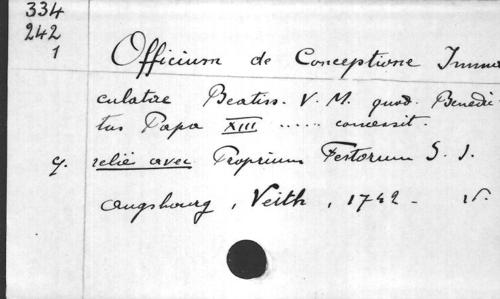 334
242
1
Officium de Conceptione Immu
culatae Beatiss. V. M. quod Benedi
tus Papa XIII ..... concessit.
relié avec Proprium Festorum S. J.
Augsbourg, Veith, 1742 -